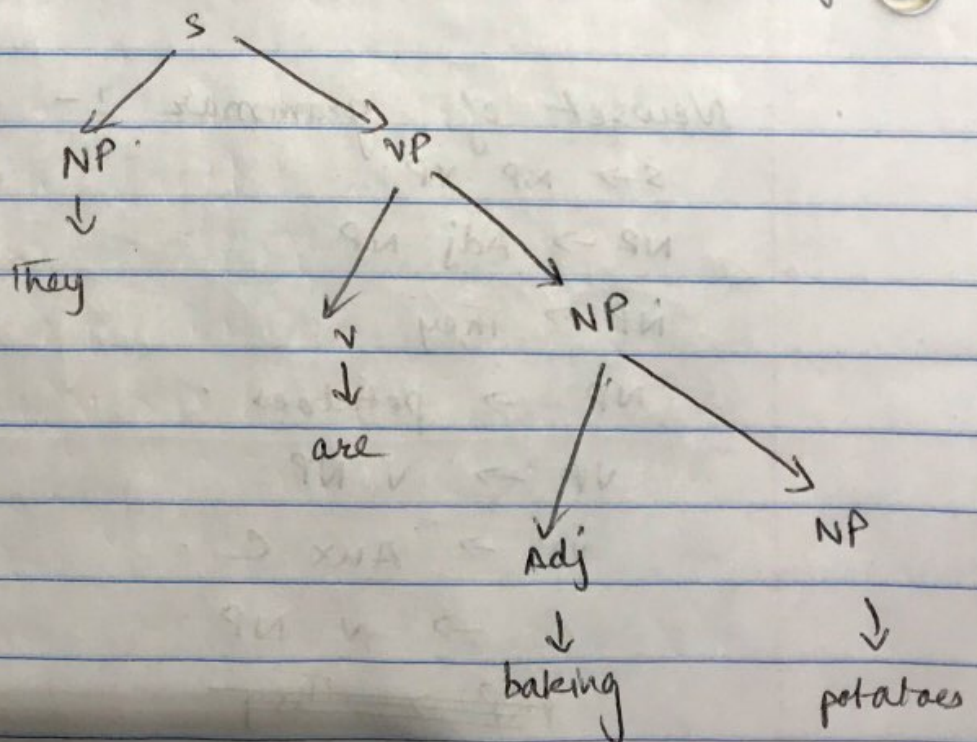 S
NP VP
They
V NP
are
Adj NP
baking potatoes